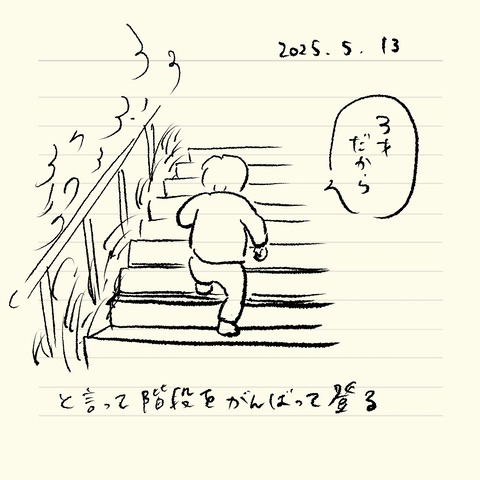 2025.5.13
3才
だから
と言って階段をがんばって登る